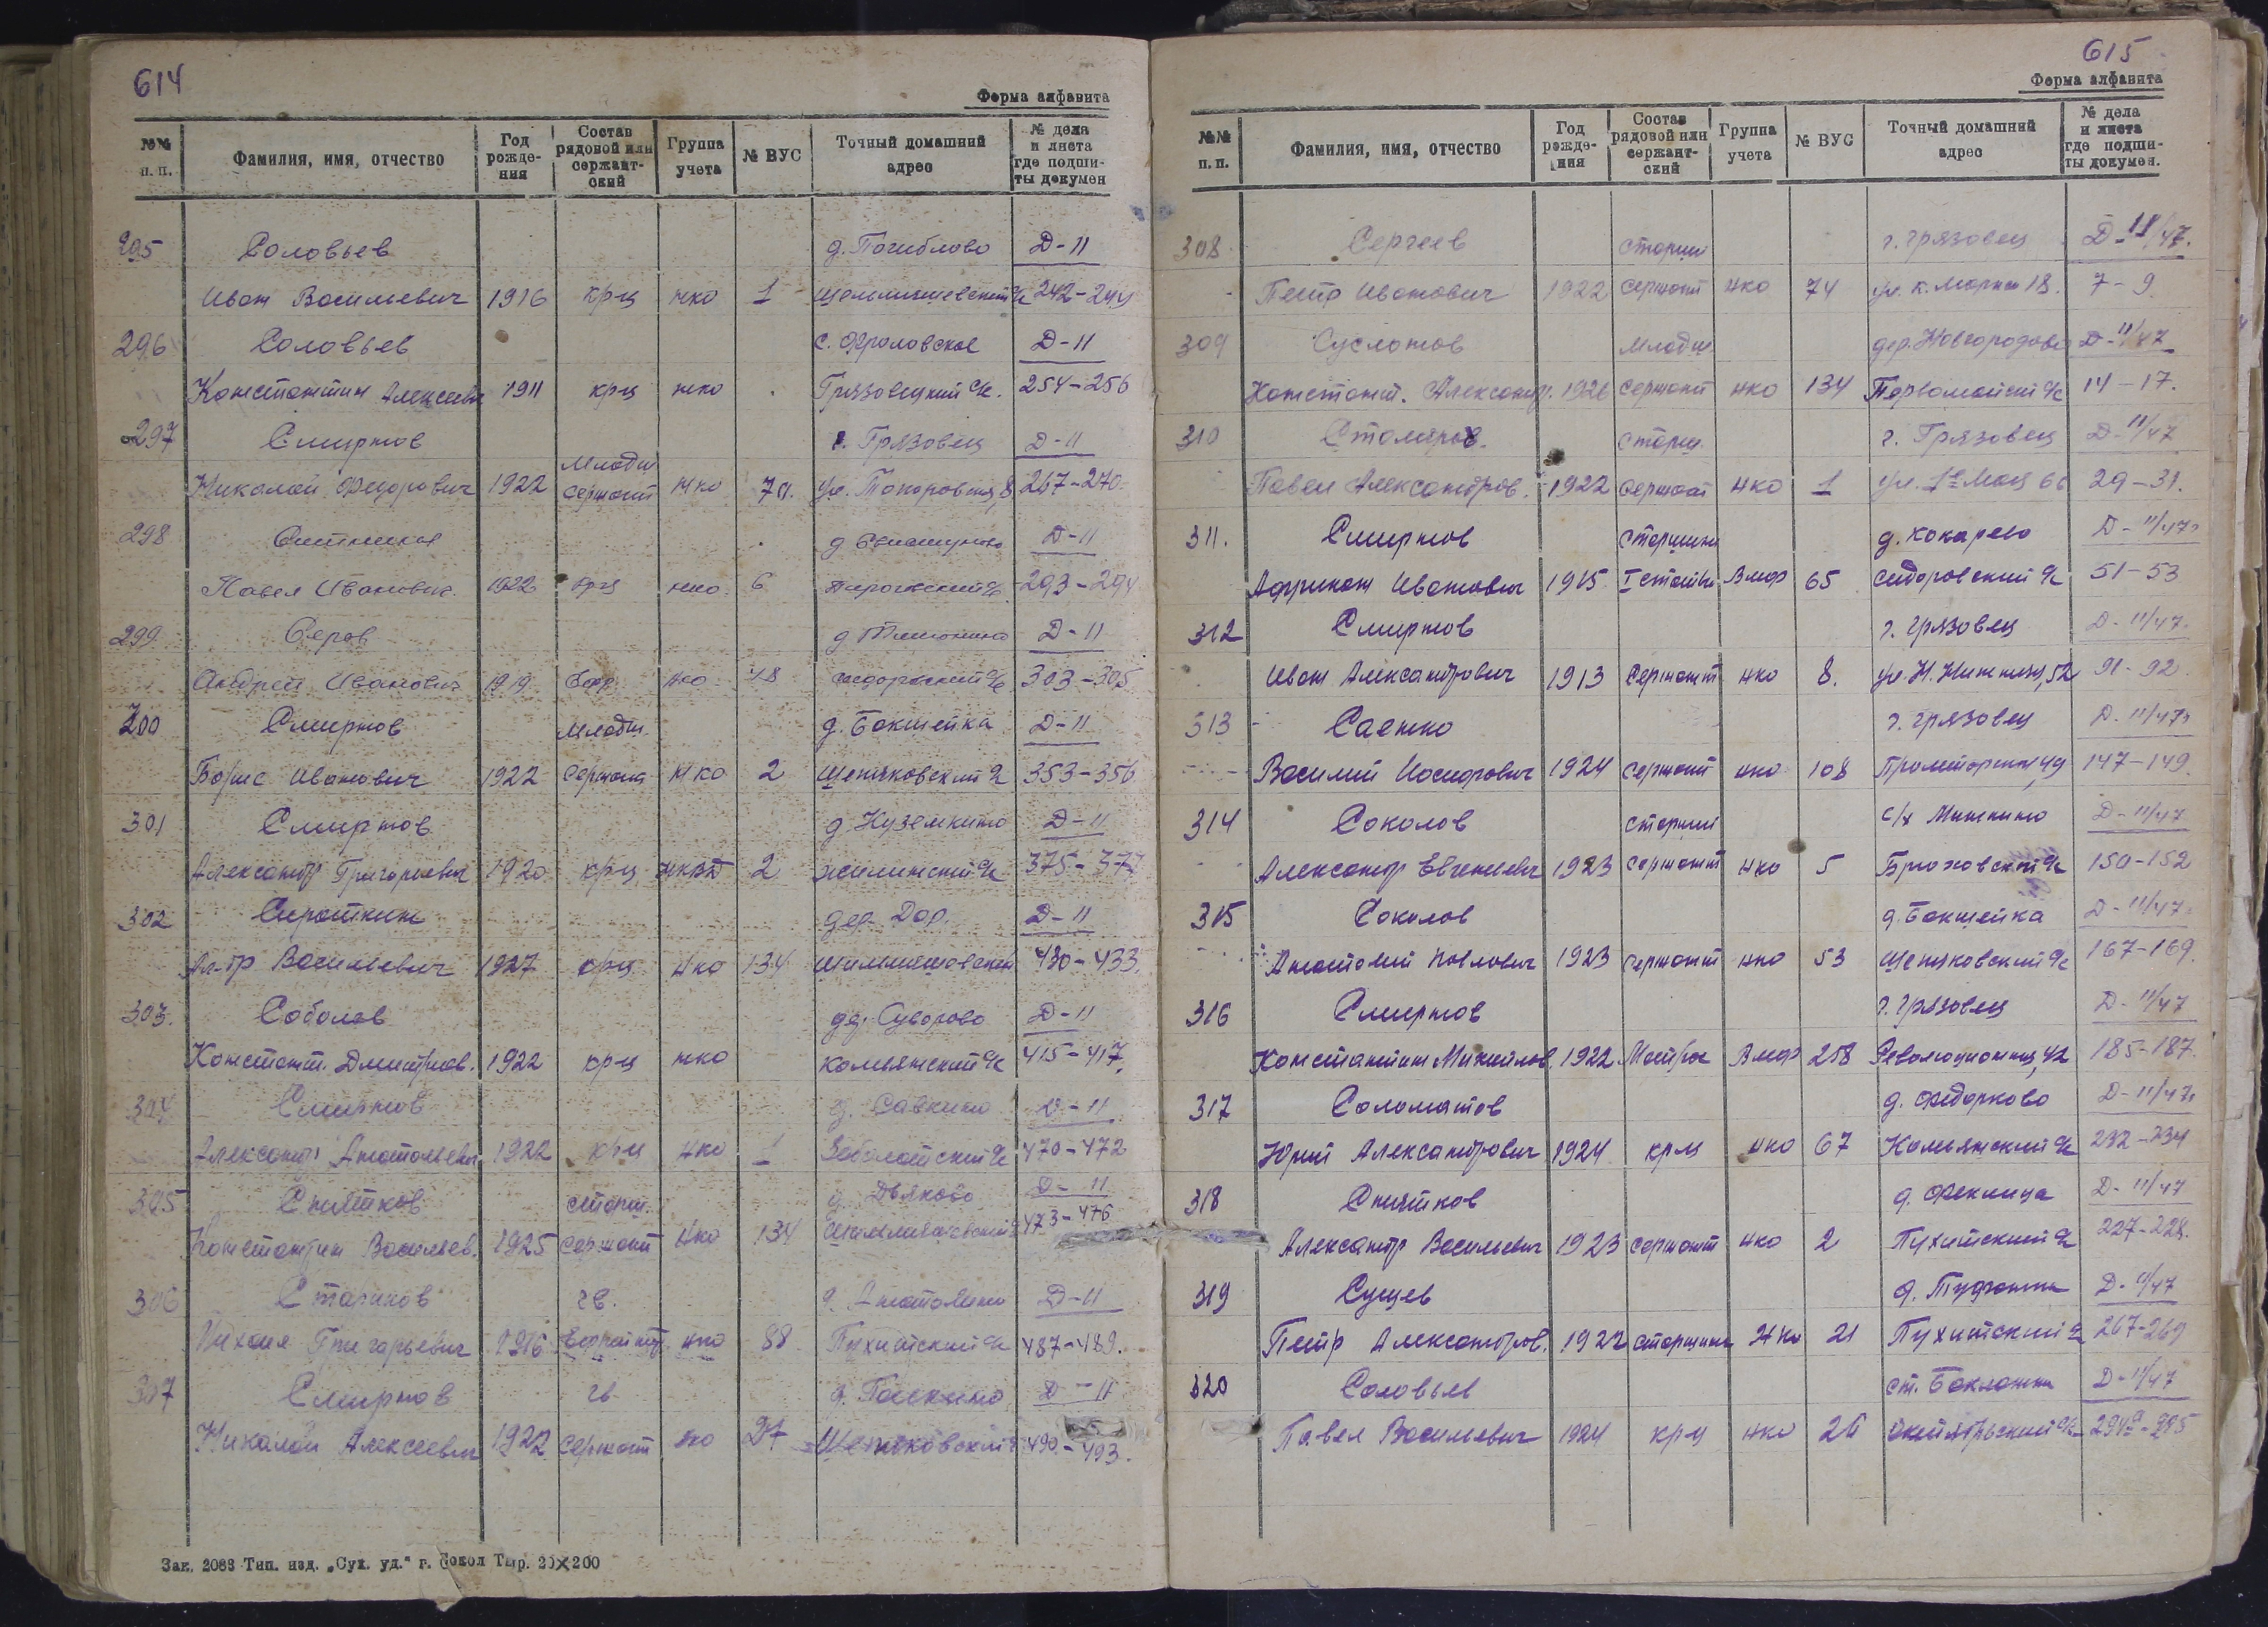 614
Форма алфавита
№№ п. п. | Фамилия, имя, отчество | Год рожде- ния | Состав рядовой или сержант- ский | Группа учета | № ВУС | Точный домашний адрес | № дела и листа где подши- ты докумен
295 Соловьев д. Погиблово Д-11
Иван Васильевич 1916 крц нко 1 242-244
296 Соловьев с. Фроловское Д-11
Константин Алексеевич 1911 крц нко Грязовецкий с/с. 254-256
297 Смирнов г. Грязовец Д-11
Николай Федорович 1922 Младш сержант нко 267-270
298 Ситников Д-11
Павел Иванович 1922 крц нко 6 293-294
299 Серов Д-11
Андрей Иванович 1919 Ефр нко 48 Сидоровский с/с 303-305
300 Смирнов младш. д. Бакшейка Д-11
Борис Иванович 1922 сержант нко 2 Щепяковский с/с 353-356
301 Смирнов д. Куземкино Д-11
Александр Григорьевич 1920 крц НКВД 2 Жилинский с/с 375-377
302 Сироткин дер. Дор. Д-11
Ал-др Васильевич 1927 крц нко 134 430-433.
303. Соболев Суворово Д-11
Констант. Дмитриев. 1922 крц нко Комьянский с/с 415-417.
304 Смирнов д. Савкино Д-11
Александр Анатольевич 1922 крц нко 1 Заболотский с/с 470-472
305 Снятков старш. д. Дьяково Д-11
Константин Васильев. 1925 сержант нко 134 473-476
306 Стариков гв. д. Анатолино Д-11
Михаил Григорьевич 1916 Ефрейтор нко 88 Пухитский с/с 487-489.
307 Смирнов гв. Д-11
Николай Алексеевич 1922 сержант нко Щепяковский 490-493.
Зак. 2083 Тип. изд. „Сух. уд." г. Сокол Тир. 20×200
615
Форма алфавита
№№ п. п. | Фамилия, имя, отчество | Год рожде- ния | Состав рядовой или сержант- ский | Группа учета | № ВУС | Точный домашний адрес | № дела и листа где подши- ты докумен.
308 Сергеев старши г. Грязовец Д-11/47.
Петр Иванович 1922 сержант нко 74 ул. К. Маркса 18. 7-9
309 Суслонов младш. дер. Новгородово Д-11/47
Констант. Александр. 1926 сержант нко 134 Первомайский с/с 14-17.
310 Столяров. старш. г. Грязовец Д-11/47
Павел Александров. 1922 сержант нко 1 ул. 1е Мая 66 29-31.
311. Смирнов старшина д. Кокарево Д-11/47
Африкан Иванович 1915 I статьи Вмф 65 Сидоровский с/с 51-53
312 Смирнов г. Грязовец Д-11/47.
Иван Александрович 1913 Сержант нко 8. 91-92
313 Саенко г. Грязовец Д-11/47
Василий Иосифович 1924 сержант нко 108 147-149.
314 Соколов старший с/х Мишкино Д-11/47
Александр Евгеньевич 1923 сержант нко 5 150-152
315 Соколов д. Бакшейка Д-11/47
Анатолий Павлович 1923 сержант нко 53 Щепяковский с/с 167-169.
316 Смирнов г. Грязовец Д-11/47
Константин Михайлов. 1922 Матрос Вмф 258 Революционная, 42 185-187.
317 Соломатов д. Федорково Д-11/47
Юрий Александрович 1924 крц нко 67 Комьянский с/с 232-234
318 Снятков д. Феклица Д-11/47
Александр Васильевич 1923 сержант нко 2 Пухитский с/с 227-228.
319 Сущев Д-11/47
Петр Александров. 1922 старшина нко 21 Пухитский с/с 267-269
320 Соловьев ст. Бакланка Д-11/47
Павел Васильевич 1924 крц нко 26 Октябрьский с/с